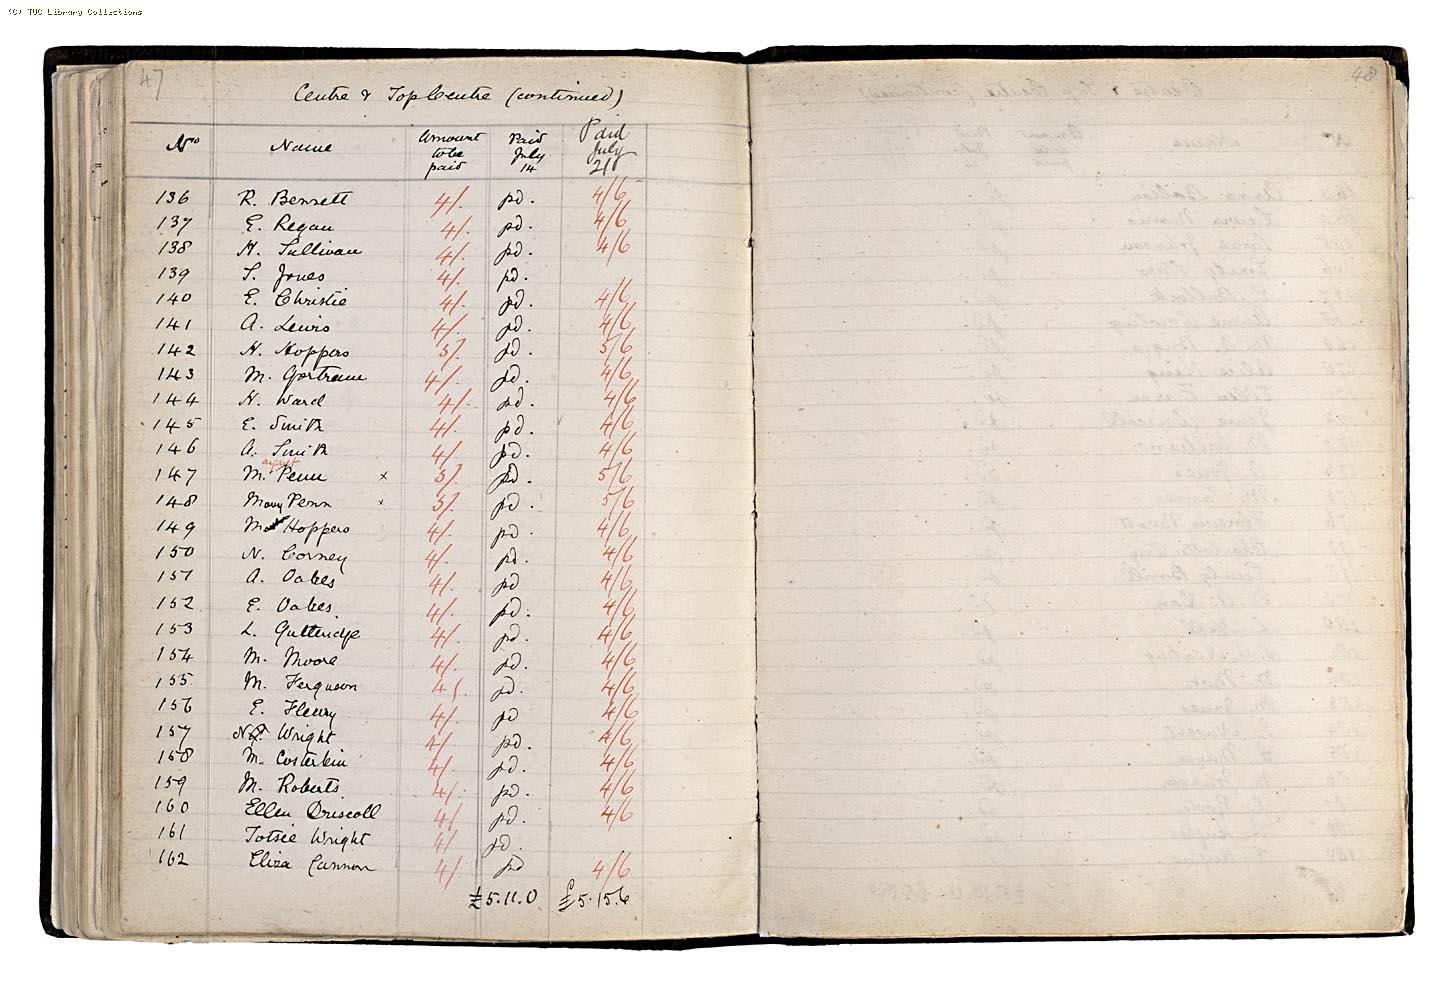 (C) TUC Library Collections
47
48
Centre & Top Centre (continued)
No Name Amount to be paid Paid July 14 Paid July 21
136 R. Bennett 4/. pd. 4/6
137 E. Regan 4/. pd. 4/6
138 H. Sullivan 4/. pd. 4/6
139 S. Jones 4/. pd.
140 E. Christie 4/. pd. 4/6
141 A. Lewis 4/. pd. 4/6
142 H. Hoppers 5/. pd. 5/6
143 M. 4/. pd. 4/6
144 H. Ward 4/. pd. 4/6
145 E. Smith 4/. pd. 4/6
146 A. Smith 4/. pd. 4/6
147 M. Penn x 5/. pd. 5/6
148 Mary Penn x 5/. pd. 5/6
149 Hoppers 4/. pd. 4/6
150 N. Corney 4/. pd. 4/6
151 A. Oakes 4/. pd 4/6
152 E. Oakes 4/. pd. 4/6
153 L. Gutteridge 4/. pd. 4/6
154 M. Moore 4/. pd. 4/6
155 M. Ferguson 4/. pd. 4/6
156 E. Fleury 4/. pd 4/6
157 Wright 4/. pd. 4/6
158 M. Costerkin 4/. pd. 4/6
159 M. Roberts 4/. pd. 4/6
160 Ellen Driscoll 4/ pd. 4/6
161 Totsie Wright 4/ pd.
162 Eliza Cannon 4/. pd 4/6
£5.11.0 £5.15.6